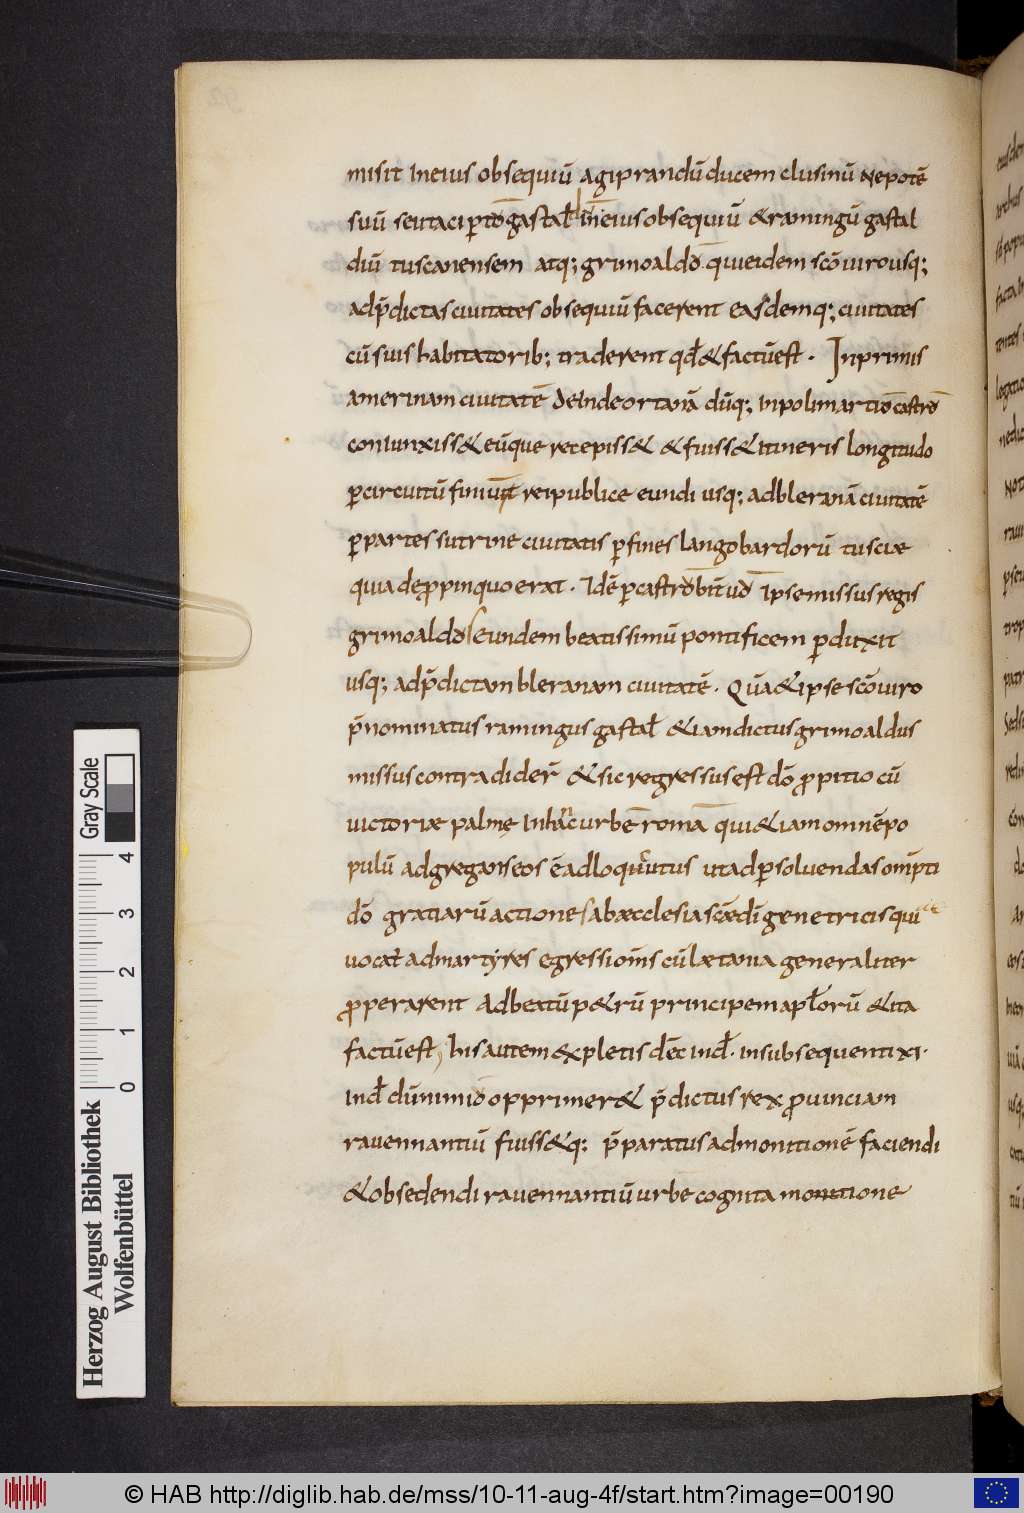 misit ineius obsequiū agiprandū ducem clusinū nepotē
suū seu taci ꝑtō gastałd in eius obsequiū & ramingū gastal
diū tuscanensem atq; grimoaldō. qui eidem scō uiro usq;
ad p̄dictas ciuitates obsequiū facerent easdemq; ciuitates
cū suis habitatorib; traderent qđ & factū est. Inprimis
amerinam ciuitatē deinde ortanā dūq; in polimartiō castrō
coniunxiss& eū que recepiss& & fuiss& itineris longitudo
ꝑ circuitū finiū reipublice eundi usq; ad bleranā ciuitatē
ꝑ partes sutrine ciuitatis ꝑ fines langobardorū tusciae
quia de ꝓpinquo erat. Idē ꝑ castrō bitūd ipse missus regis
grimoaldō Eundem beatissimū pontificem ꝑduxit
usq; ad p̄dictam bleranam ciuitatē. Quā & ipse scō uiro
p̄nominatus ramingus gastał & iam dictus grimoaldus
missus contradider̄ & sic regressus est dō ꝓpitio cū
uictoriae palmę in hāc urbē romā qui & iam omnē po
pulū adgregans eos ē adloquutus ut ad ꝑsoluendas omīpti
dō gratiarū actiones ab aecclesia scāe dī genetricis qui
uocat̄ ad martyres egressi oīns cū laetania generaliter
ꝓperarent ad beatū p&rū principem apłorū & ita
factū est, his autem expletis dēc inđ. in subsequenti xi.
inđ dū nimio opprimer& p̄dictus rex ꝓuinciam
rauennantiū fuiss&q; p̄paratus ad monitionē faciendi
& obsedendi rauennantiū urbē cognita monitione
Gray Scale
0 1 2 3 4
Herzog August Bibliothek
Wolfenbüttel
© HAB http://diglib.hab.de/mss/10-11-aug-4f/start.htm?image=00190